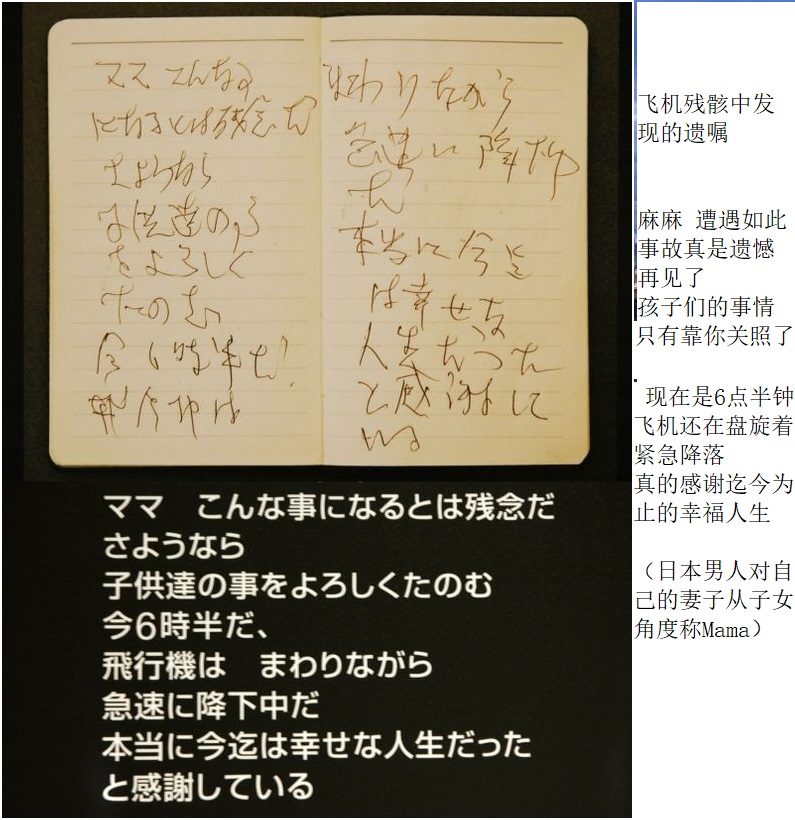 ママ こんな事
になるとは残念だ
さようなら
子供達の事
をよろしく
たのむ
今6時半だ、
飛行機は
まわりながら
急速に降下中
だ
本当に今迄
は幸せな
人生だった
と感謝して
いる
ママ　こんな事になるとは残念だ
さようなら
子供達の事をよろしくたのむ
今6時半だ、
飛行機は　まわりながら
急速に降下中だ
本当に今迄は幸せな人生だった
と感謝している
飞机残骸中发
现的遗嘱
麻麻 遭遇如此
事故真是遗憾
再见了
孩子们的事情
只有靠你关照了
现在是6点半钟
飞机还在盘旋着
紧急降落
真的感谢迄今为
止的幸福人生
（日本男人对自
己的妻子从子女
角度称Mama）